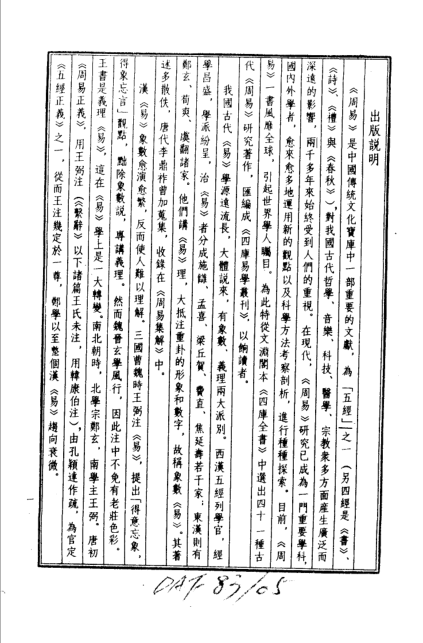 出版説明
《周易》是中國傳統文化寶庫中一部重要的文獻、為「五經」之一（另四經是《書》、
《詩》、《禮》與《春秋》），對我國古代哲學、音樂、科技、醫學、宗教衆多方面産生廣泛而
深遠的影響，兩千多年來始終受到人們的重視。在現代，《周易》研究已成為一門重要學科，
國內外學者，愈來愈多地運用新的觀點以及科學方法考察剖析，進行種種探索。目前，《周
易》一書風靡全球，引起世界學人矚目。為此特從文淵閣本《四庫全書》中選出四十一種古
代《周易》研究著作，匯編成《四庫易學叢刊》，以餉讀者。
我國古代《易》學源遠流長，大體說來，有象數、義理兩大派別。西漢五經列學官，經
學昌盛，學派紛呈，治《易》者分成施讎、孟喜、梁丘賀、費直、焦延壽若干家；東漢則有
鄭玄、荀爽、虞翻諸家。他們講《易》理，大抵注重卦的形象和數字，故稱象數《易》。其著
述多散佚，唐代李鼎祚曾加蒐集，收録在《周易集解》中。
漢《易》象數愈演愈繁，反而使人難以理解。三國曹魏時王弼注《易》，提出「得意忘象，
得象忘言」觀點，黜除象數說，專講義理。然而魏晉玄學風行，因此注中不免有老莊色彩。
王書是義理《易》，這在《易》學上是一大轉變。南北朝時，北學宗鄭玄，南學主王弼。唐初
《周易正義》，用王弼注（《繫辭》以下諸篇王氏未注，用韓康伯注），由孔穎達作疏，為官定
《五經正義》之一，從而王注幾定於一尊，鄭學以至整個漢《易》趨向衰微。
一
OAT 89/05